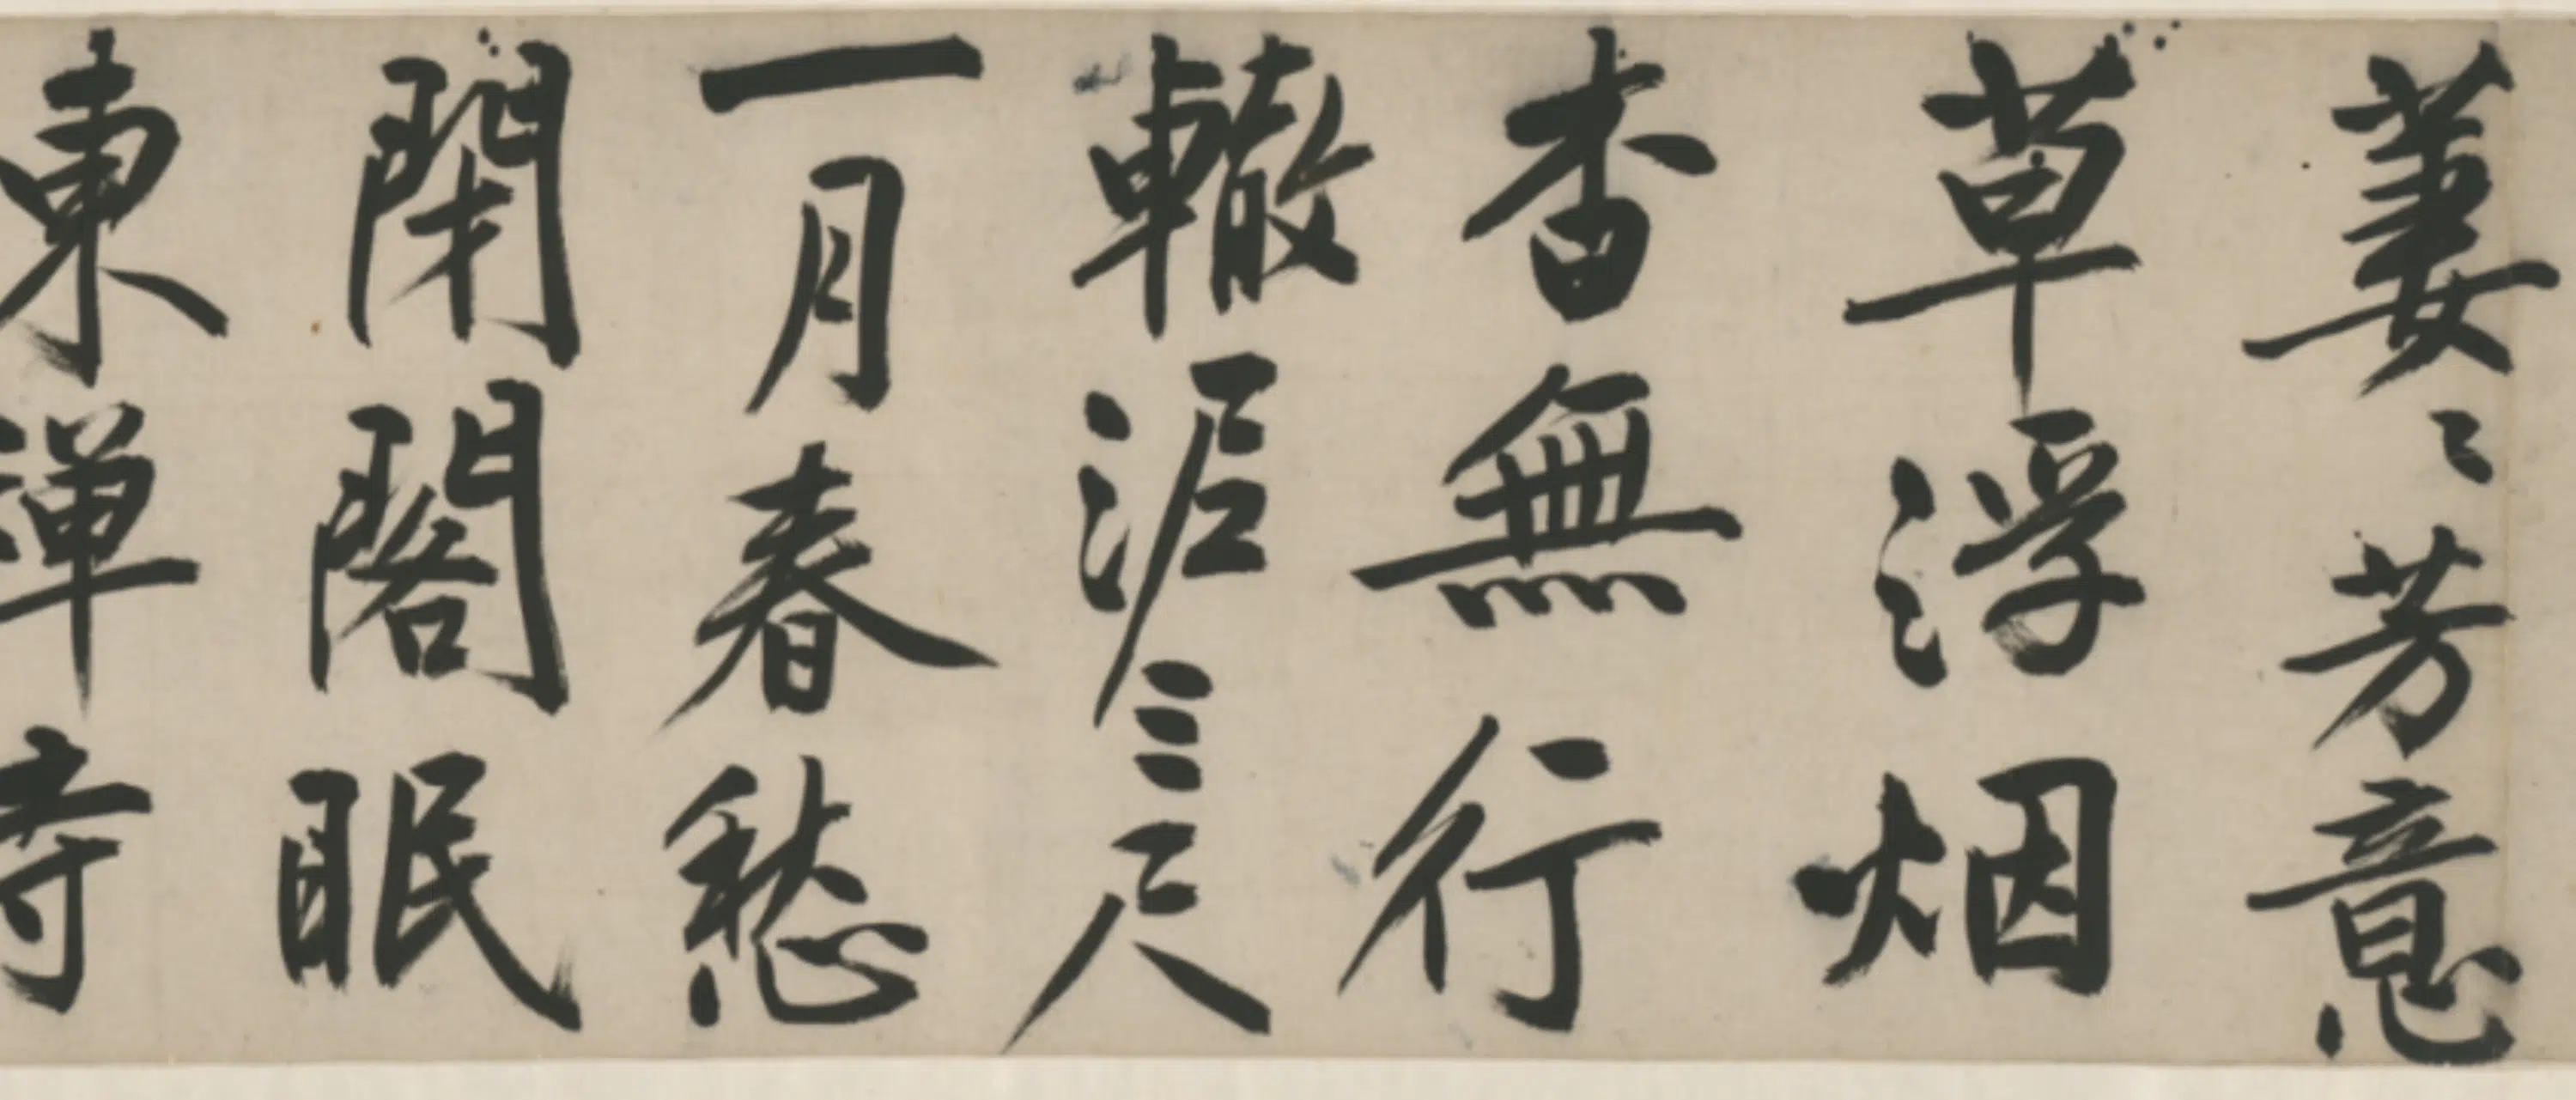 萋〻芳意
草浮烟
杳無行
轍泥三尺
一月春愁
閉閣眠
東禪寺